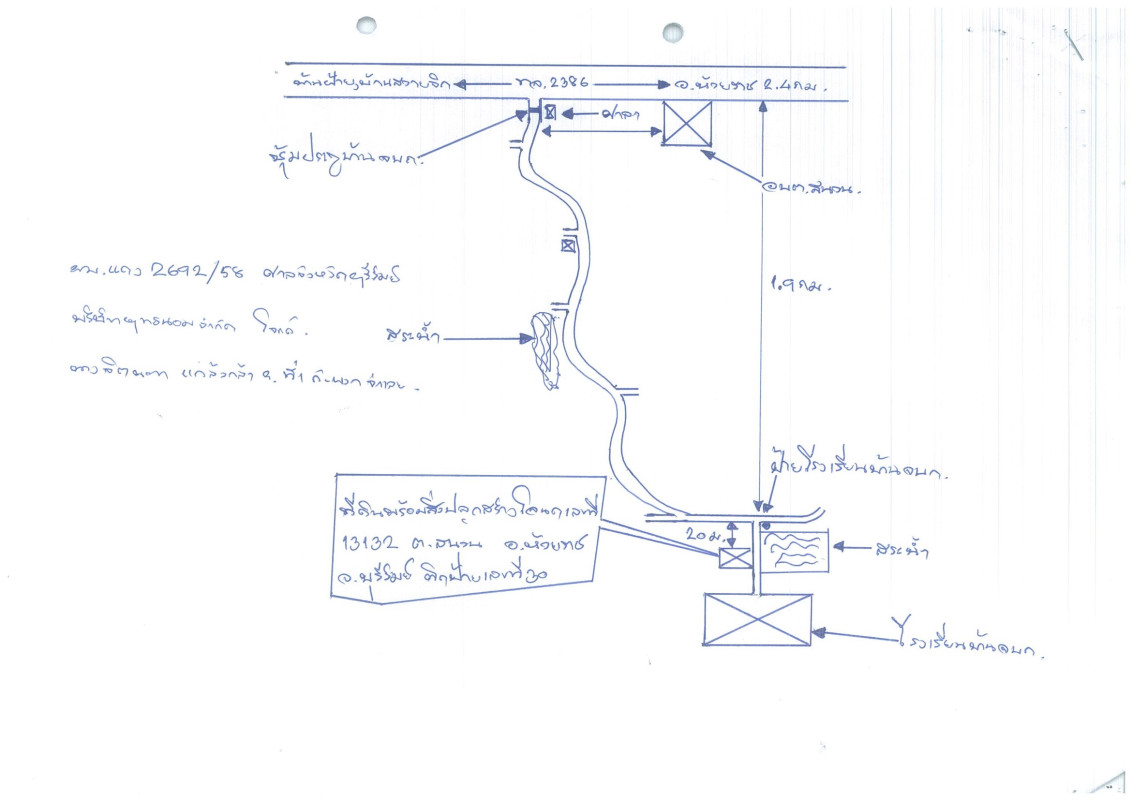 บ้านฝ้าย,บ้านสวายจีก ทล.2386 อ.ห้วยราช 2.4 กม.
ศาลา
ซุ้มประตูบ้านจบก.
อบต.สนวน.
ผบ.แดง 2692/58 ศาลจังหวัดบุรีรัมย์
1.9 กม.
บริษัท จำกัด โจทก์.
สระน้ำ
แก้วกล้า ที่ 1 กับพวก จำเลย.
ป้ายโรงเรียนบ้านจบก.
ที่ดินพร้อมสิ่งปลูกสร้างโฉนดเลขที่
20 ม.
13132 ต.สนวน อ.ห้วยราช
สระน้ำ
จ.บุรีรัมย์ ติดป้ายเลขที่ 30
โรงเรียนบ้านจบก.